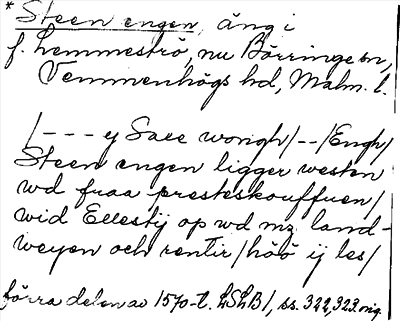 * Steen engen, äng i
f. Lemmeströ, nu Börringe sn,
Vemmenhögs hd, Malm. l.
/--- y Saee wongh/--/Engh/
Steen engen ligger westen
wd fraa presteskouffuen/
wid Ellestij op wd mz land-
weyen och rentir/höö ij les/
förra delen av 1570-t. LSLB1, ss. 322,323. orig.